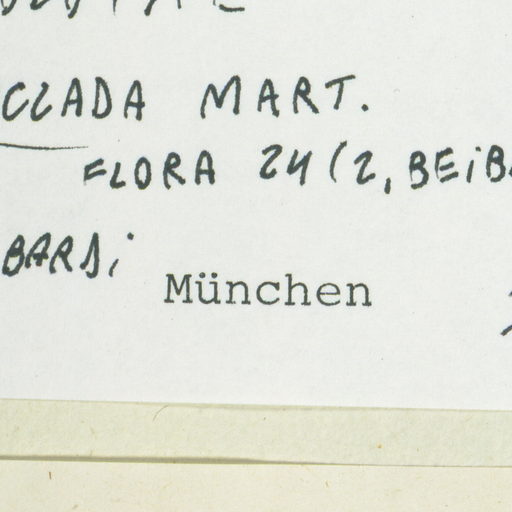 CLADA MART.
FLORA 24(2, BEIB
BARDI
München